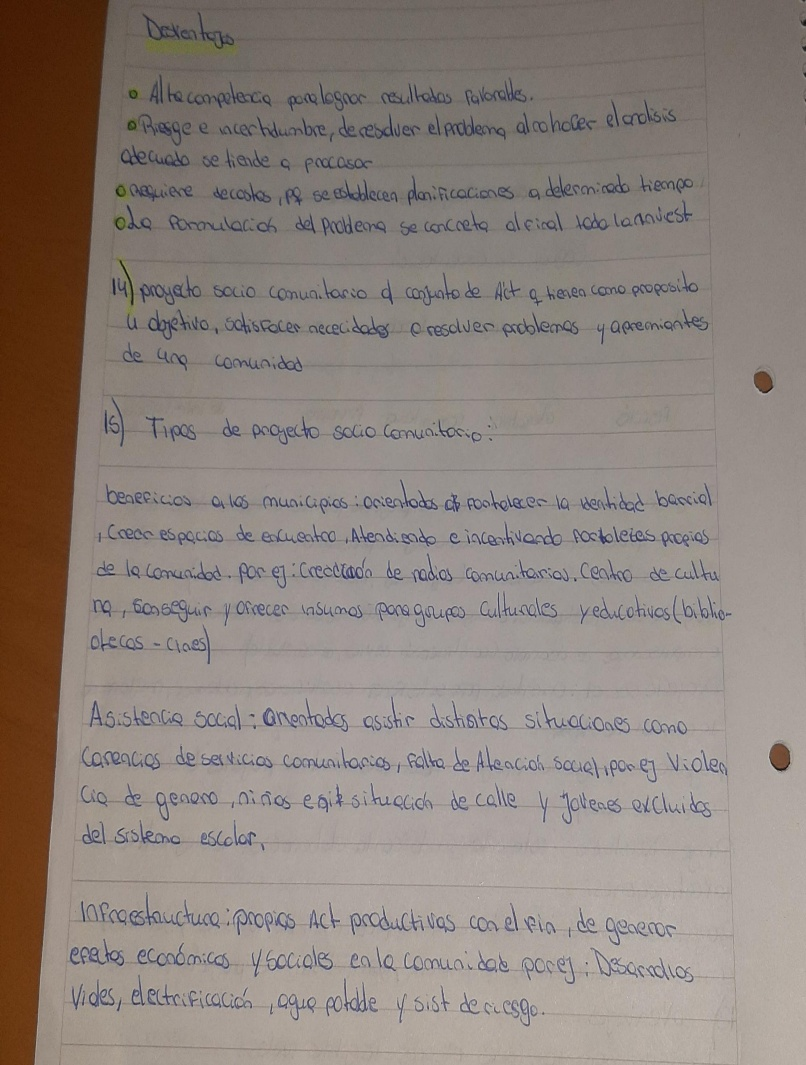 Desventaja
• Alta competencia para lograr resultados favorables.
• Riesgo e incertidumbre, de resolver el problema al no hacer el analisis
adecuado se tiende a fracasar
• requiere de costos, pq se establecen planificaciones a determinado tiempo
• La formulación del problema se concreta al final toda la invest
14) proyecto socio comunitario conjunto de Act q tienen como proposito
u objetivo, satisfacer nececidades o resolver problemas y apremiantes
de una comunidad
15) Tipos de proyecto socio comunitario:
beneficios a los municipios: orientados a fortalecer la identidad barrial
, Crear espacios de encuentro, Atendiendo e incentivando fortalezas propias
de la comunidad. por ej: Creación de radios comunitarias. Centro de cultu
ra, conseguir y ofrecer insumos para grupos culturales y educativos (biblio-
otecas - cines)
Asistencia social: orientados asistir distintas situaciones como
carencias de servicios comunitarios, falta de Atencion social, por ej Violen
cia de genero, niños situación de calle y jovenes excluidos
del sistema escolar.
Infraestructura: propias Act productivas con el fin, de generar
efectos económicos y sociales en la comunidad por ej: Desarrollos
Viales, electrificación, agua potable y sist de riesgo.